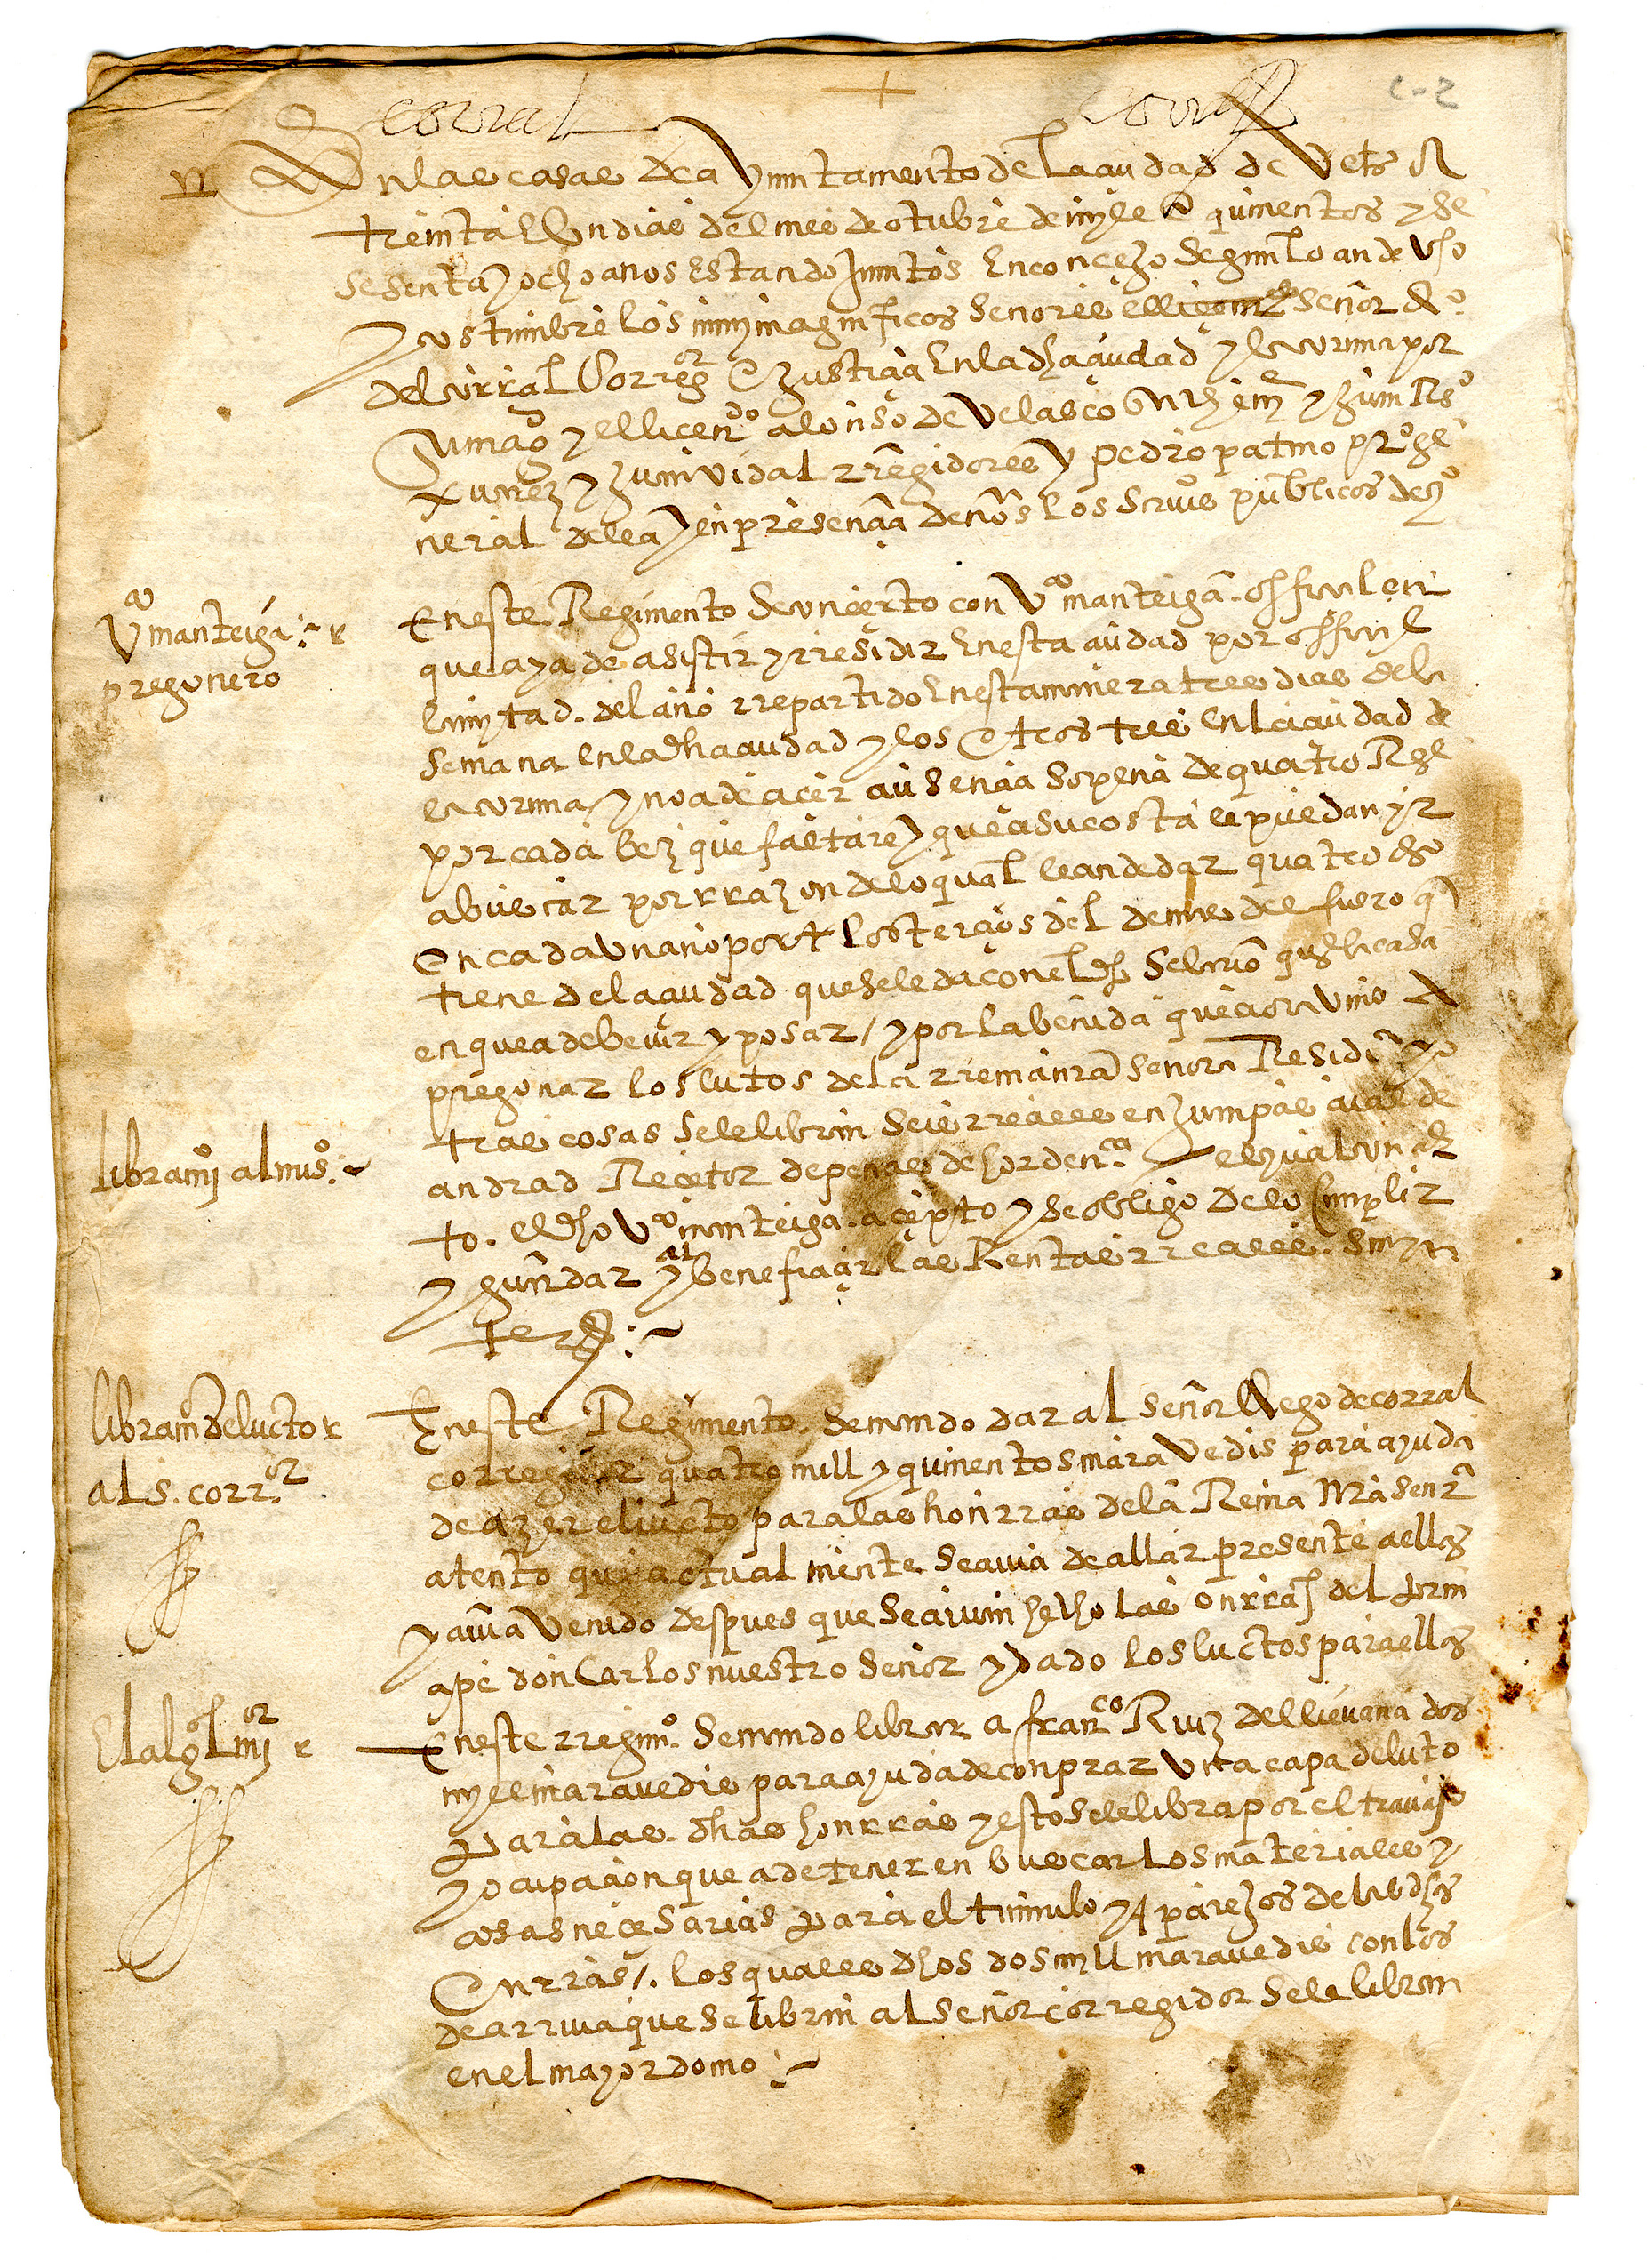 corral
corral
En las casas de ayuntamiento de la ciudad de vetsos a
treinta e un dias del mes de otubre de myll e quinientos y se
senta y ocho anos estando juntos en concejo segun lo an de uso
y costunbre los muy magnificos senores el señor do
del corral correg.or e justicia en la dha ciudad y la coruna por
su mag.d y el licen.do alonso de velasco
xuarez y juan vidal rregidores y pedro patino pr.or ge
neral della y en presencia de nos los scrivos publicos de
Vo manteiga
pregonero
En este Regimento se concerto con Vo manteiga
que aya de asistir y rresidir en esta ciudad por
la mytad del año rrepartido en esta manera tres dias de la
semana en la dha ciudad y los otros tres en la ciudad de
la coruna y no a de acer ausencia so pena de quatro Rs
por cada bez que faltare y que a su costa le puedan yr
a buscar por rrazon de lo qual le an de dar quatro ds
en cada un ano por los tercios del demas del fuero q
tiene de la ciudad que se le da con el
en que a de bevir y posar / y por la benida que aora vino a
pregonar los lutos de la rreina nra senora
libram.to al mismo
tras cosas se le libran seis rreales en juan pas de
andrad Recetor de penas de hordença
to. el dho Vo manteiga acepto y se obligo de lo cunplir
y guardar y beneficiar las Rentas rreales
libram.to de lucto
al s. corr.or
En este Regimento se mando dar al señor diego de corral
corregidor quatro mill y quinientos maravedis para ayuda
de azer el lucto para las honrras de la Reina nra señra
atento que actualmente se avia de allar presente a ellos
y avia venido despues que se avian hecho las onrras del prin
cipe don Carlos nuestro señor y dado los luctos para ellos
En este rregim.to se mando librar a fran.co Ruiz de llievana dos
myll maravedis para ayuda de conprar una capa de luto
para las dhas honrras y esto se le libra por el travajo
y ocupacion que a de tener en buscar los materiales y
cosas necesarias para el tumulo y aparejos de las dhas
onrras /. los quales dhos dos myll maravedis con los
de arriva que se libran al señor corregidor se le libran
en el mayordomo